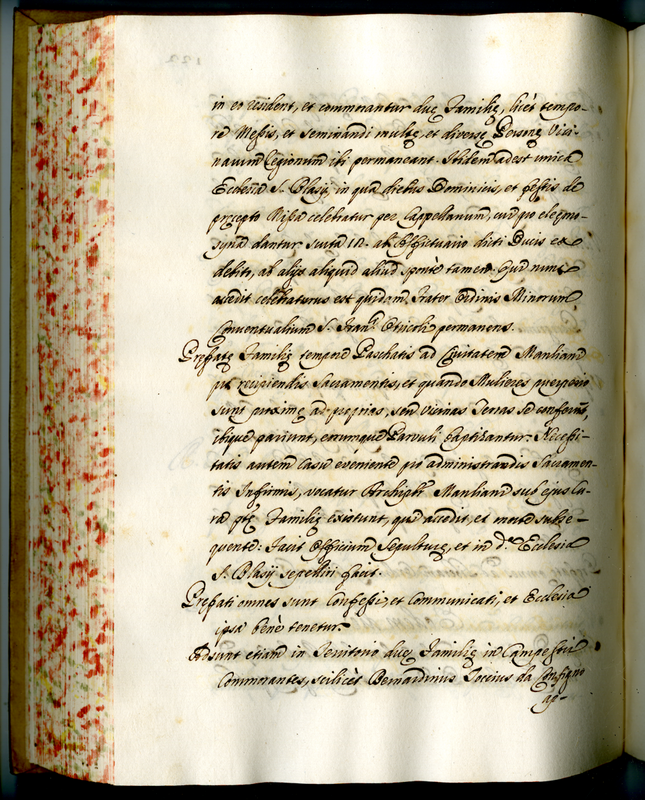 in eo resident, et commorantur duę Familię, licèt tempo-
re Messis, et seminandi multę, et diversę Personę vici-
narum Regionum ibi permaneant. Ibidem adest unica
Ecclesia S. Blasij, in qua diebus Dominicis, et festis de
pręcepto Missa celebratur per Cappellanum, cui pro eleemo-
syna dantur scuta 12. ab Affictuario dicti Ducis ex
debito, ab alijs aliquid aliud spontè tamen. Qui nunc
accedit celebraturus est quidam Frater Ordinis Minorum
Conventualium S. Fran.ci Otricoli permanens.
Prefatę Familię tempore Paschatis ad Civitatem Manliani
pro recipiendis Sacramentis, et quando Mulieres
sunt proximę ad proprias, seu vicinas Terras se conferunt,
ibique pariunt, eorumque Parvuli baptizantur. Necessi-
tatis autem casu eveniente pro administrandis Sacramen-
tis Infirmis, vocatur Archipbr Manliani sub ejus Cu-
ra ptę Familię existunt, qui accedit, et morte subse-
quente: Facit Officium Sepulturę, et in d.a Ecclesia
S. Blasij sepelliri facit.
Prefati omnes sunt Confessi, et Communicati, et Ecclesia
ipsa benè tenetur.
Adsunt etiam in Territorio duę Familię in Campestri
Commorantes, scilicèt Bernardinus Toccius da Configno
ap-